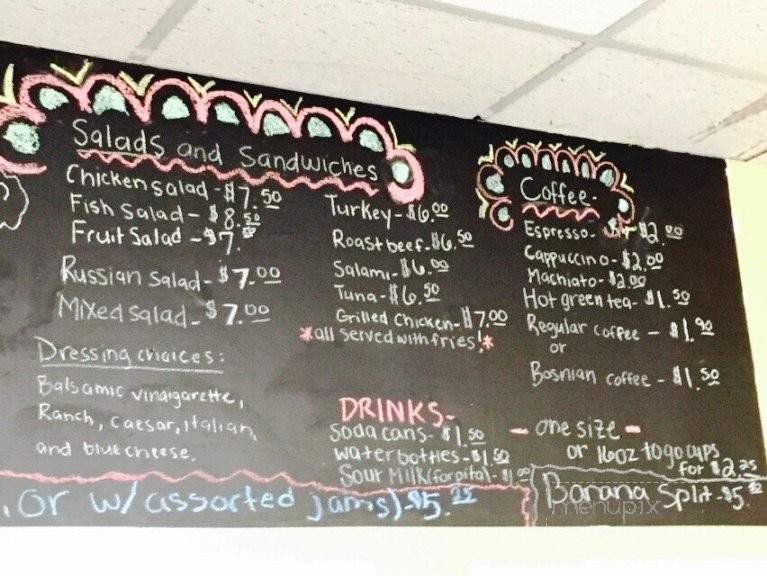 Salads and Sandwiches
Chicken salad - $7.50
Fish Salad - $8.50
Fruit Salad - $7.
Russian Salad - $7.00
Mixed salad - $7.00
Dressing choices:
Balsamic vinaigarette,
Ranch, caesar, italian,
and bluecheese.
Turkey - $6.00
Roast beef - $6.50
Salami - $6.00
Tuna - $6.50
Grilled Chicken - $7.00
*all served with fries!*
DRINKS-
Soda cans - $1.50
water bottles - $1.50
Sour Milk (for pita) - $1.00
Coffee-
Espresso - $2.00
Cappuccino - $2.00
Machiato - $2.00
Hot green tea - $1.50
Regular coffee - $1.90
or
Bosnian coffee - $1.50
- one size -
or 16oz to go cups
for $2.25
or w/ assorted jams) - $5.
Banana Split - $5.
menupix